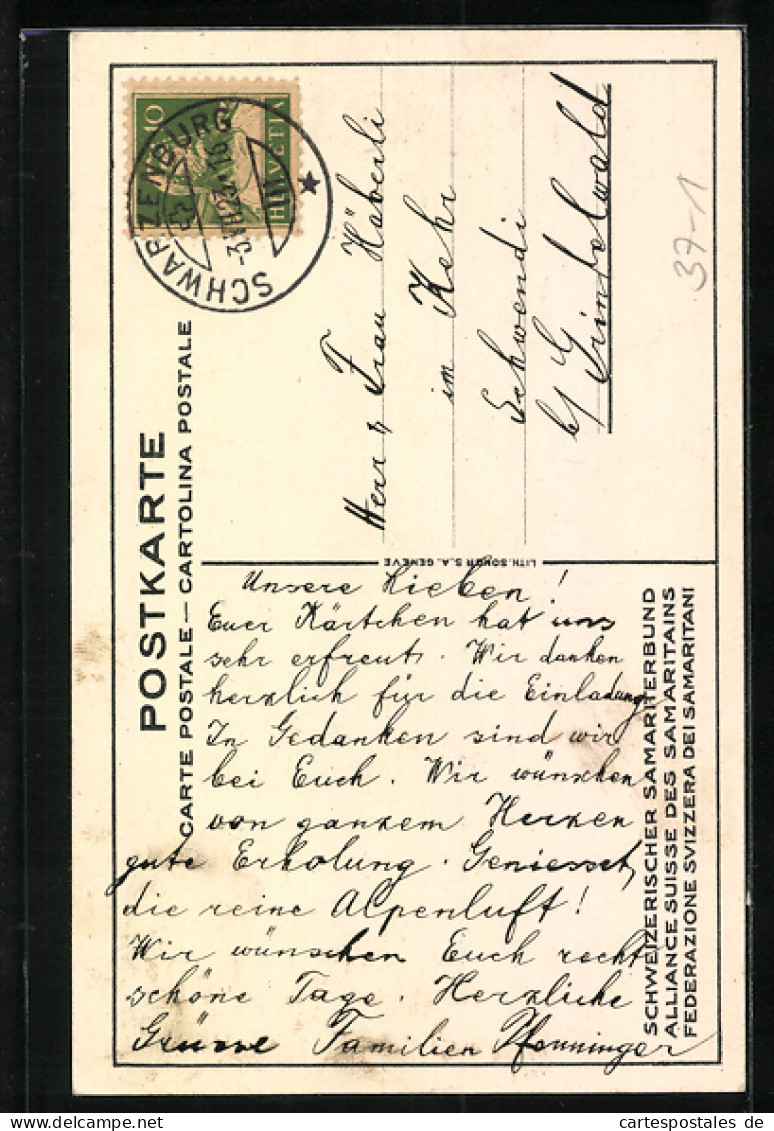 POSTKARTE
CARTE POSTALE — CARTOLINA POSTALE
10
HELVETIA
SCHWARZENBURG
Herr & Frau Häberli
im Kehr
Schwendi
b/ Grindelwald
37-1
LITH. SONOR S.A., GENÈVE
Unsere Lieben!
Euer Kärtchen hat uns
sehr erfreut. Wir danken
herzlich für die Einladung
In Gedanken sind wir
bei Euch. Wir wünschen
von ganzem Herzen
gute Erholung. Geniesset
die reine Alpenluft!
Wir wünschen Euch recht
schöne Tage. Herzliche
Grüsse Familien Pfenninger
SCHWEIZERISCHER SAMARITERBUND
ALLIANCE SUISSE DES SAMARITAINS
FEDERAZIONE SVIZZERA DEI SAMARITANI
cartespostales de